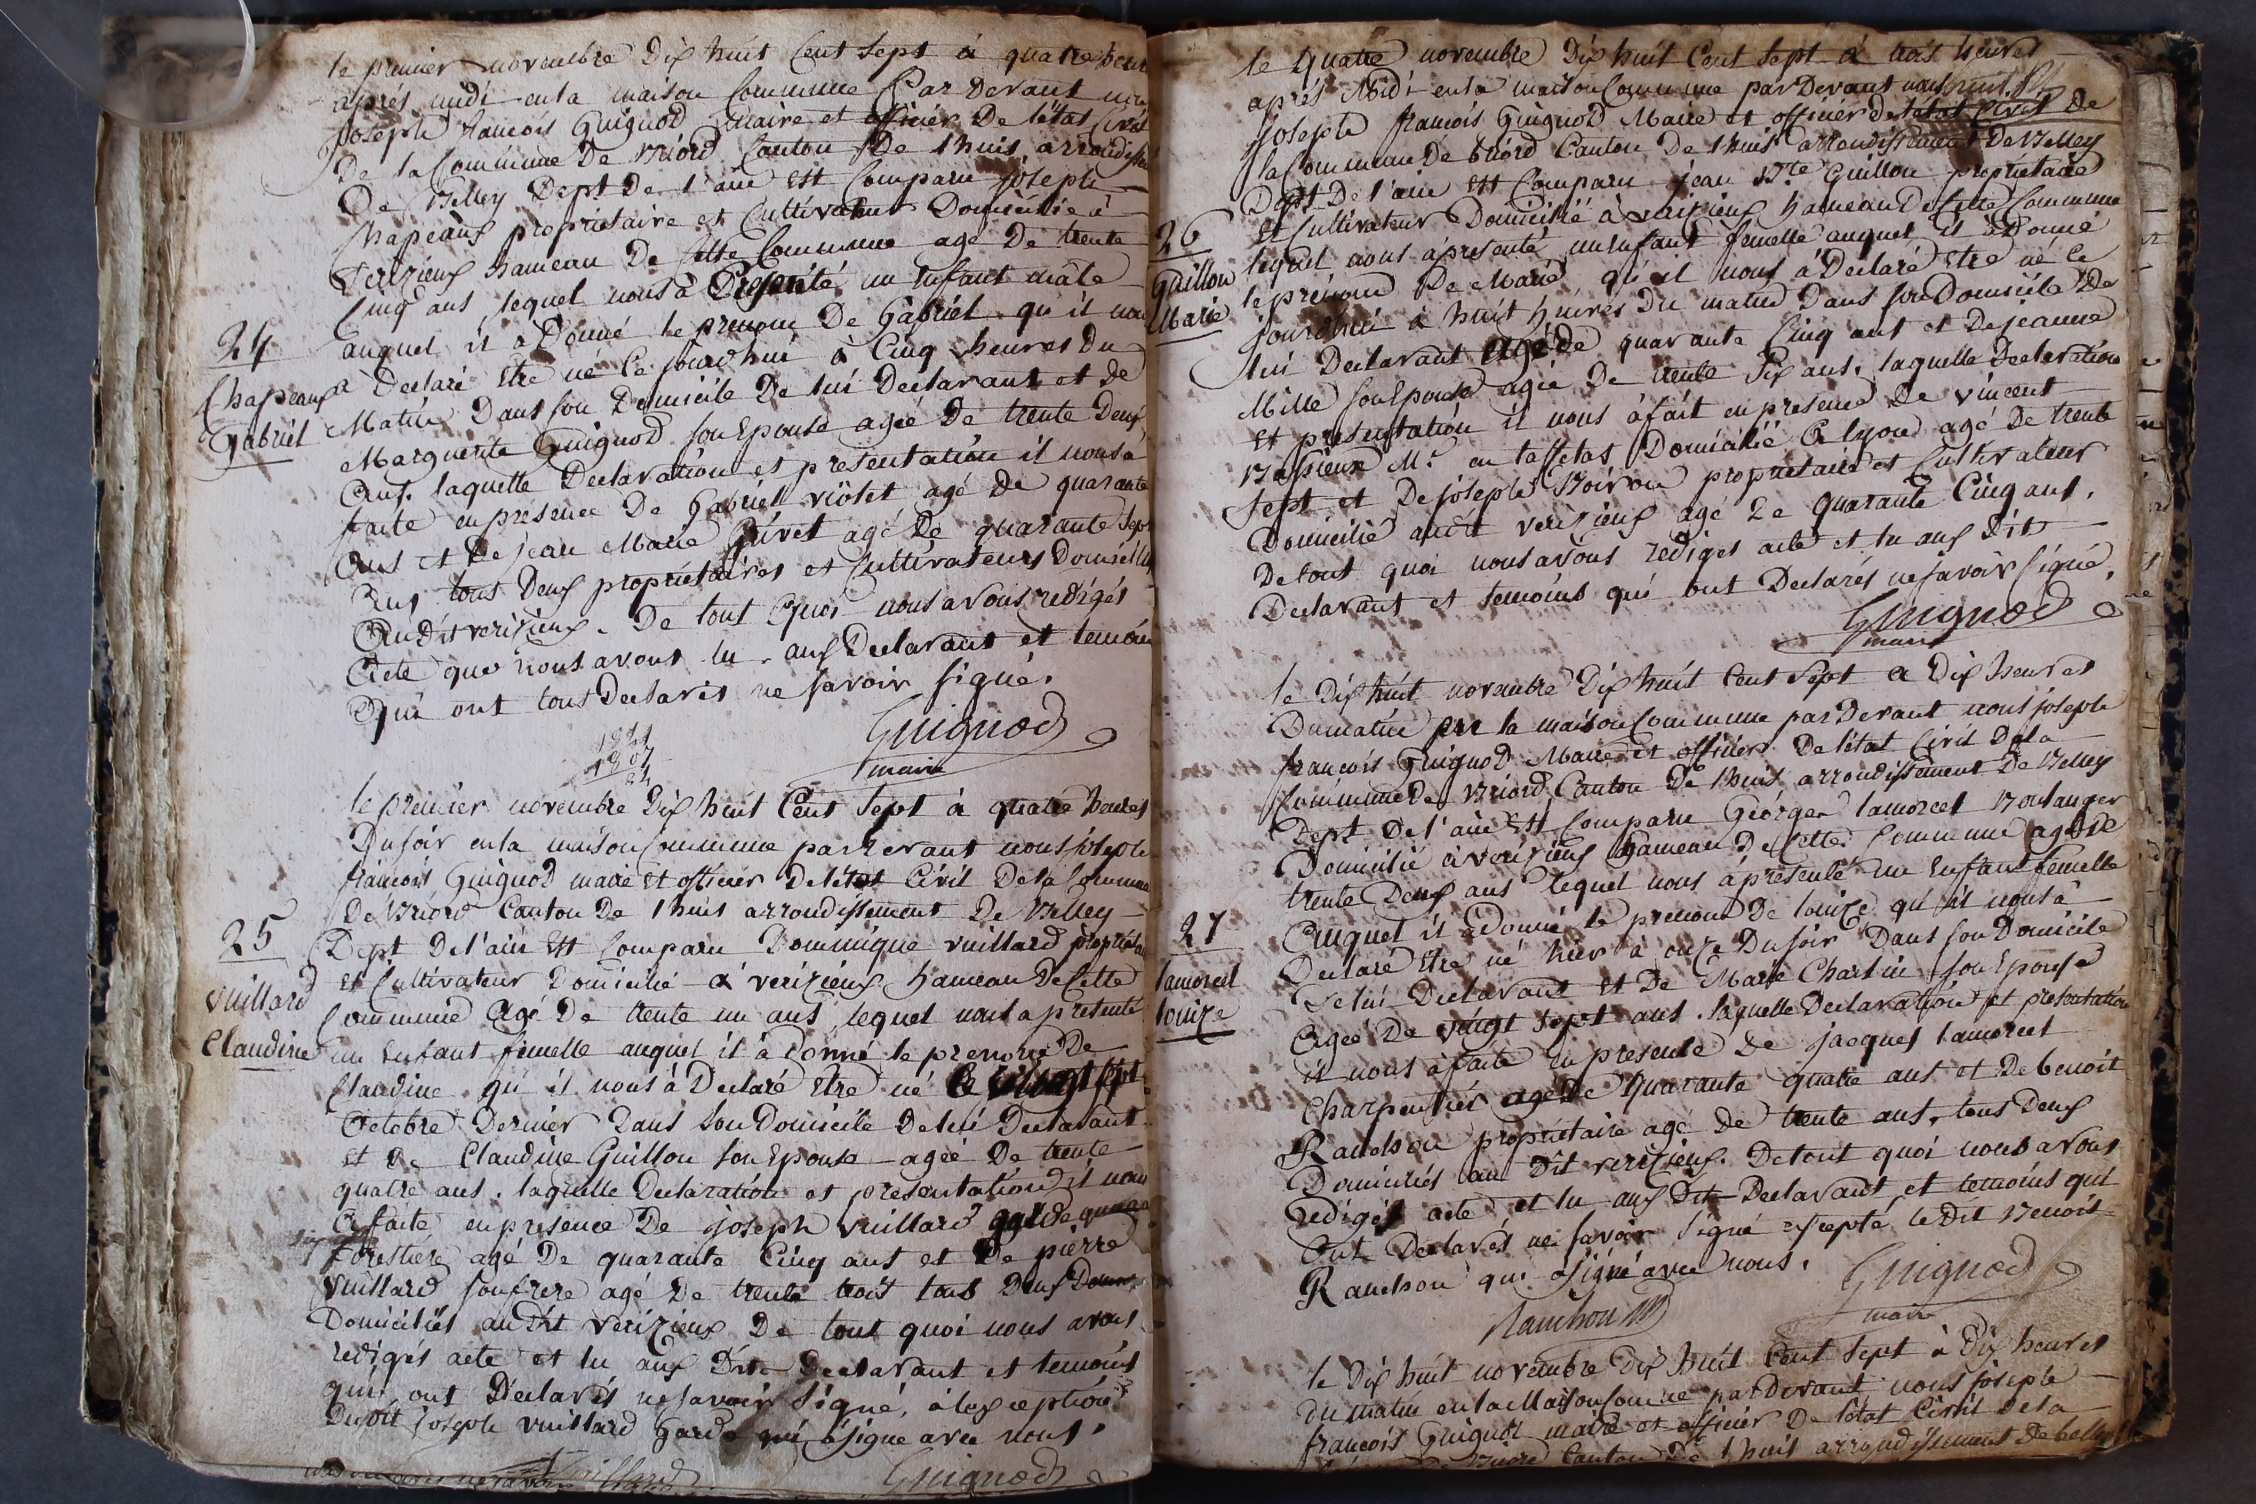 le premier novembre dix huit cent sept à quatre heur
aprés midi en la maison Commune Par Devant nou
joseph francois Guignod maire et officier De l'état Civil
De la Commune De Briord Canton De Lhuis arrondisse
De Belley Dept De l'ain est Comparu joseph
Chapeaux propriétaire et Cultivateur Domicilié à
verizieux hameau De Cette Commune agé De trente
Cinq ans lequel nous à Présenté un Enfant mâle
24
auquel il à Donné le prenom De Gabriel qu'il nou
Chapeaux
à Déclaré etre né Ce jourdhui à Cinq heures Du
gabriel
Matin Dans son Domicile De lui Déclarant et de
Marguerite Guignod son Epouse agée De trente Deux
ans. laquelle Declaration et présentation il nous à
faite en présence De Gabriel viollet agé de quarante
ans et De jean Marie Grivet agé De quarante sept
ans tous Deux propriétaires et Cultivateurs Domicilié
audit verizieux. De tout quoi nous avons redigés
acte que nous avons lu aux Declarant et temoin
qui ont tous Declarés ne savoir signé.
Guignod
maire
1831
1807
24
le premier novembre Dix huit Cent Sept à quatre heures
Du soir en la maison Commune par Devant nous joseph
francois Guignod maire et officier De l'état Civil De la Commune
De Briord Canton De Lhuis arrondissement De Belley
25
Dept De l'ain est Comparu Dominique vuillard propriétai
et Cultivateur Domicilié à verizieux hameau De Cette
vuillard
Commune agé De trente un ans lequel nous a présenté
Claudine
un Enfant femelle auquel il à Donné le prenom De
Claudine qu'il nous à Declaré etre né le vingt sept
Octobre Dernier Dans son Domicile De lui Declarant
et De Claudine Guillon son Epouse agée De trente
quatre ans. laquelle Declaration et présentation il nous
à faite en présence De joseph vuillard garde
forestière agé De quarante Cinq ans et De pierre
vuillard son frere agé De trente trois tous Deux
Domiciliés audit verizieux De tout quoi nous avons
redigés acte et lu aux Dits Declarant et temoins
qui ont Déclarés ne savoir Signé, à l'exception
Dudit joseph vuillard Garde qui à signé avec nous.
vuillard Guignod
le quatre novembre Dix huit Cent Sept à trois heures
aprés Midi en la maison Commune par Devant nous
joseph francois Guignod Maire et officier De l'état Civil De
la Commune De Briord Canton De Lhuis arrondissement De Belley
Dept De l'ain est Comparu jean Bte Guillon propriétaire
26
et Cultivateur Domicilié à verizieux hameau De Cette Commune
lequel nous à présenté un Enfant femelle auquel il à Donné
Guillon
le prénom De Marie qu'il nous à Declaré etre né Ce
Marie
jourdhui à huit heures Du matin Dans son Domicile De
lui Declarant agé de quarante Cinq ans et De jeanne
Mille son Epouse agée De trente Six ans. laquelle Declaration
et présentation il nous à fait en présence De vincent
Bassieux Md. en taffetas Domicilié à lyon agé De trente
sept et De joseph Boiron propriétaire et Cultivateur
Domicilié audit verizieux agé De quarante Cinq ans.
De tout quoi nous avons rediges acte et lu aux Dit
Declarant et temoins qui ont Declarés ne savoir signé.
Guignod
maire
le Dix huit novembre Dix huit Cent Sept à Dix heures
Du matin en la maison Commune par Devant nous joseph
francois Guignod Maire et officier De l'état Civil De la
Commune De Briord Canton De Lhuis arrondissement De Belley
Dept De l'ain est Comparu George lamorcet Boulanger
Domicilié à verizieux hameau De Cette Commune agé De
trente Deux ans lequel nous à présenté un Enfant femelle
27
auquel il à Donné le prenom De louize qu'il nous à
Declaré etre né hier à onze Du soir Dans son Domicile
lamorcet
De lui Declarant et De Marie Charlin son Epouse
louize
agée De vingt Sept ans. laquelle Declaration et présentation
il nous à faite en présence De jacques lamorcet
Charpentier agé De quarante quatre ans et De benoit
Ranchon propriétaire agé De trente ans. tous Deux
Domiciliés audit verizieux. De tout quoi nous avons
redigés acte et lu aux Dit Declarant et temoins qui
ont Declarés ne savoir signé excepté le Dit Benoit
Ranchon qui à signé avec nous.
Ranchon Guignod
maire
le Dix huit novembre Dix huit Cent Sept à Dix heures
du matin en la Maison Comune par Devant nous joseph
francois Guignod maire et officier De l'état Civil De la
Briord Canton De Lhuis arrondissement De belley